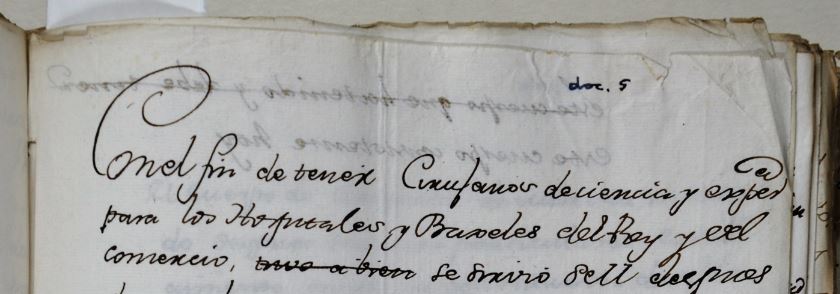 doc. 5
Con el fin de tener Cirujanos de ciencia y exper.ª
para los Hospitales y Baxeles del Rey y del
comercio, tuvo a bien se sirvio S. M. despues